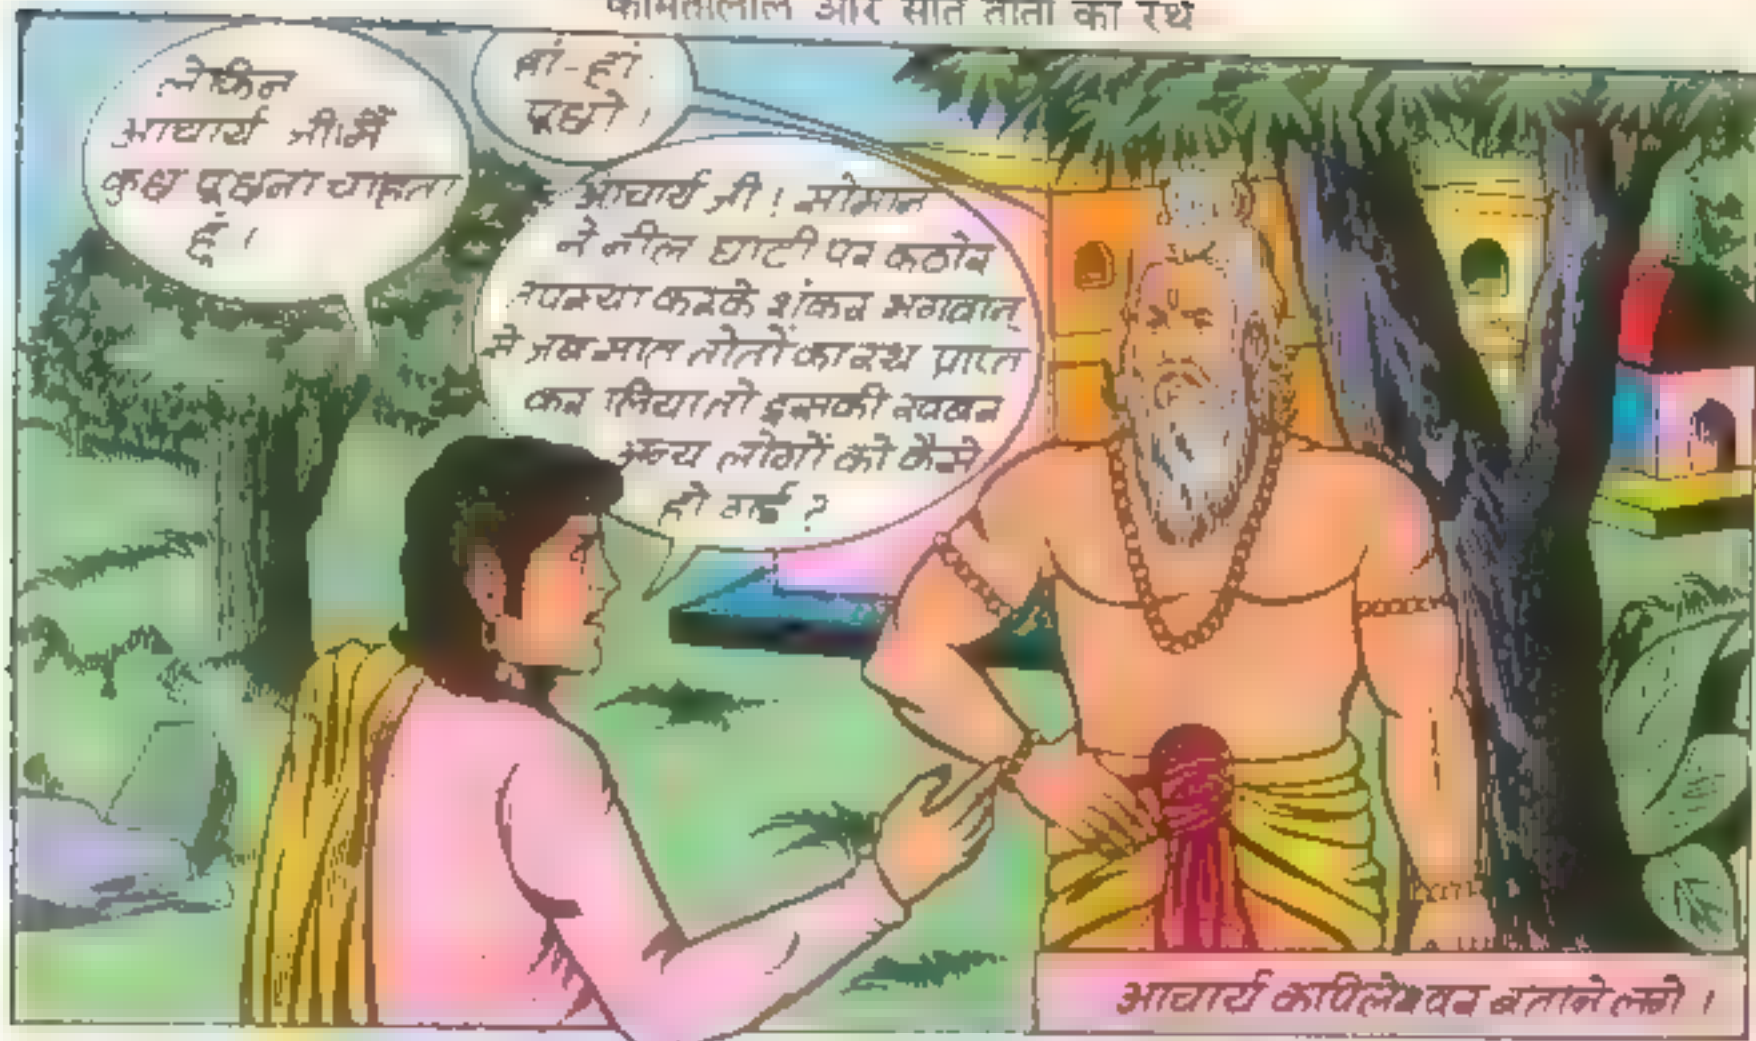 और सात तोतों का रथ
लेकिन
आचार्य जी! मैं
कुछ पूछना चाहता
हूं।
हां-हां
पूछो।
आचार्य जी! सोमान
ने नील घाटी पर कठोर
तपस्या करके शंकर भगवान्
से जब सात तोतों का रथ प्राप्त
कर लिया तो इसकी खबर
अन्य लोगों को कैसे
हो गई?
आचार्य कपिलेश्वर बताने लगे।